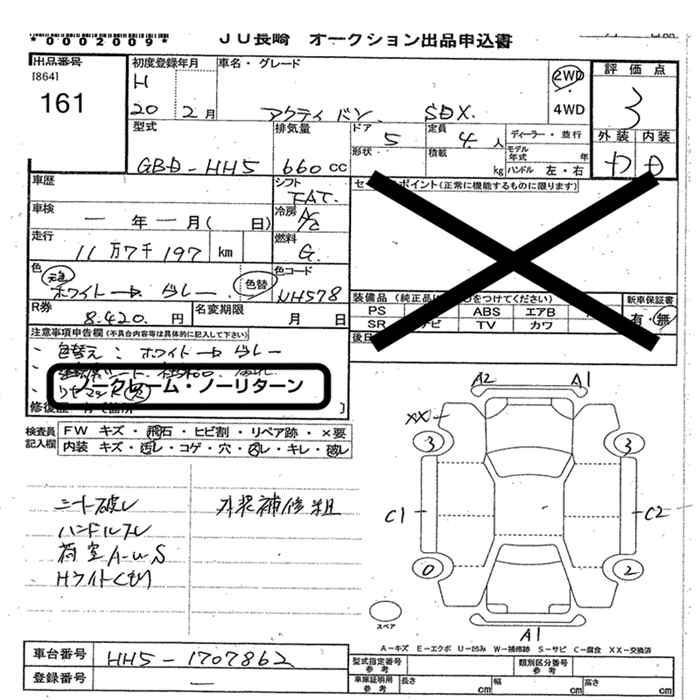 *0002009*
JU長崎 オークション出品申込書
出品番号
[864]
161
初度登録年月
H
20 2月
車名・グレード
アクティ バン SDX.
2WD
4WD
評価点
3
外装 内装
型式
GBD-HH5
排気量
660 CC
ドア
5
定員
4人
ディーラー・並行
形状
積載
kg
モデル年式 年
ハンドル 左・右
車歴
シフト
FAT.
車検
一年一月( 日)
冷房
A/C
走行
11万7千197 km
燃料
G.
色
元色
ホワイト
色替
色カラード
NH578
R券
8.420. 円
名変期限
月 日
セ ポイント(正常に機能するものに限ります)
装備品(純正品は をつけてください)
PS ABS エアB
SR ナビ TV カワ
新車保証書
有・無
後日
注意事項申告欄(不具合内容等は具体的に記入して下さい)
・色替え:ホワイト
ノークレーム・ノーリターン
修復歴
検査員記入欄
FW キズ・飛石・ヒビ割・リペア跡・×要
内装 キズ・汚レ・コゲ・穴・スレ・キレ・破レ
シート破レ
ハンドルスレ
荷室A-U-S
Hライトくもり
外装補修粗
A2 A1
XX
3 3
C1 C2
0 2
A1
スペア
A-キズ E-エクボ U-凹み W-補修跡 S-サビ C-腐食 XX-交換済
車台番号
HH5-1707862
登録番号
—
型式指定番号
参考
類別区分番号
参考
車庫証明用
参考
長さ cm
幅 cm
高さ cm